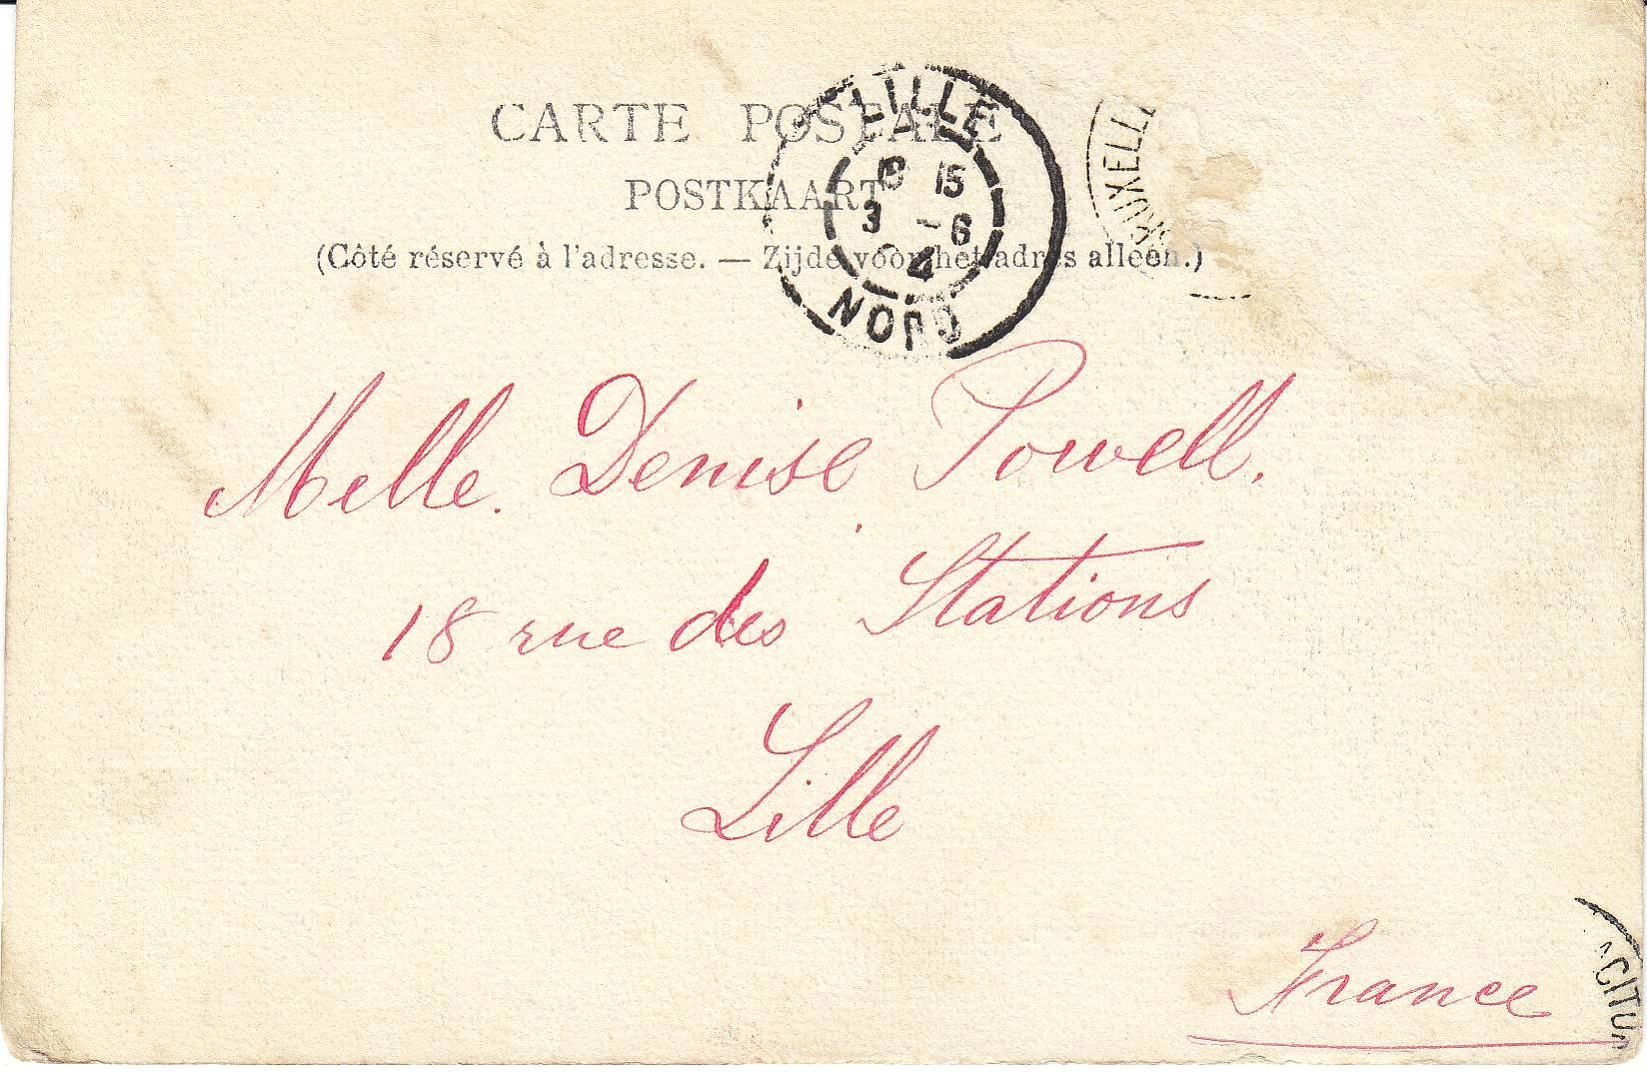 CARTE POSTALE
POSTKAART
(Côté réservé à l'adresse. — Zijde voor het adres alleen.)
LILLE
18 15
3 -6
4
NORD
BRUXELLE
Melle. Denise Powell.
18 rue des Stations
Lille
France
ACITU